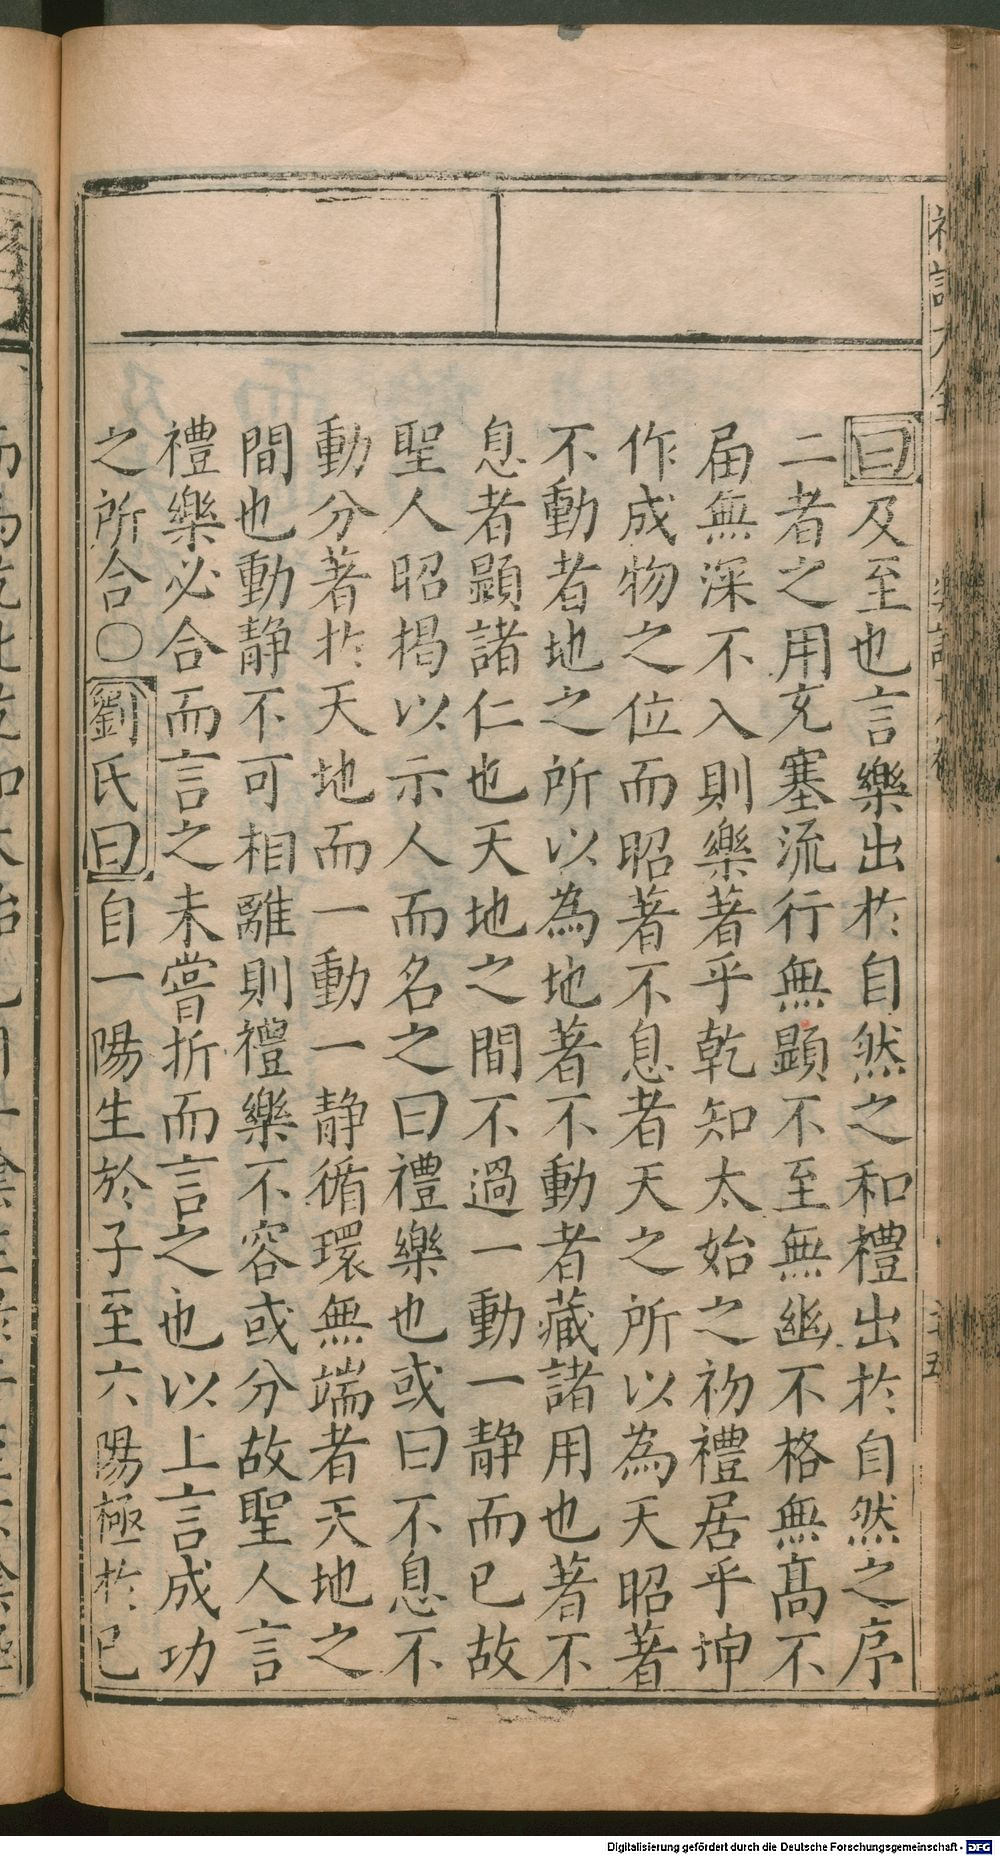 曰及至也言樂出於自然之和禮出於自然之序
二者之用充塞流行無顯不至無幽不格無高不
届無深不入則樂著乎乾知太始之初禮居乎坤
作成物之位而昭著不息者天之所以為天昭著
不動者地之所以為地著不動者藏諸用也著不
息者顯諸仁也天地之間不過一動一静而已故
聖人昭揭以示人而名之曰禮樂也或曰不息不
動分著於天地而一動一静循環無端者天地之
間也動静不可相離則禮樂不容或分故聖人言
禮樂必合而言之未嘗折而言之也以上言成功
之所合○劉氏曰自一陽生於子至六陽極於巳
Digitalisierung gefördert durch die Deutsche Forschungsgemeinschaft - DFG